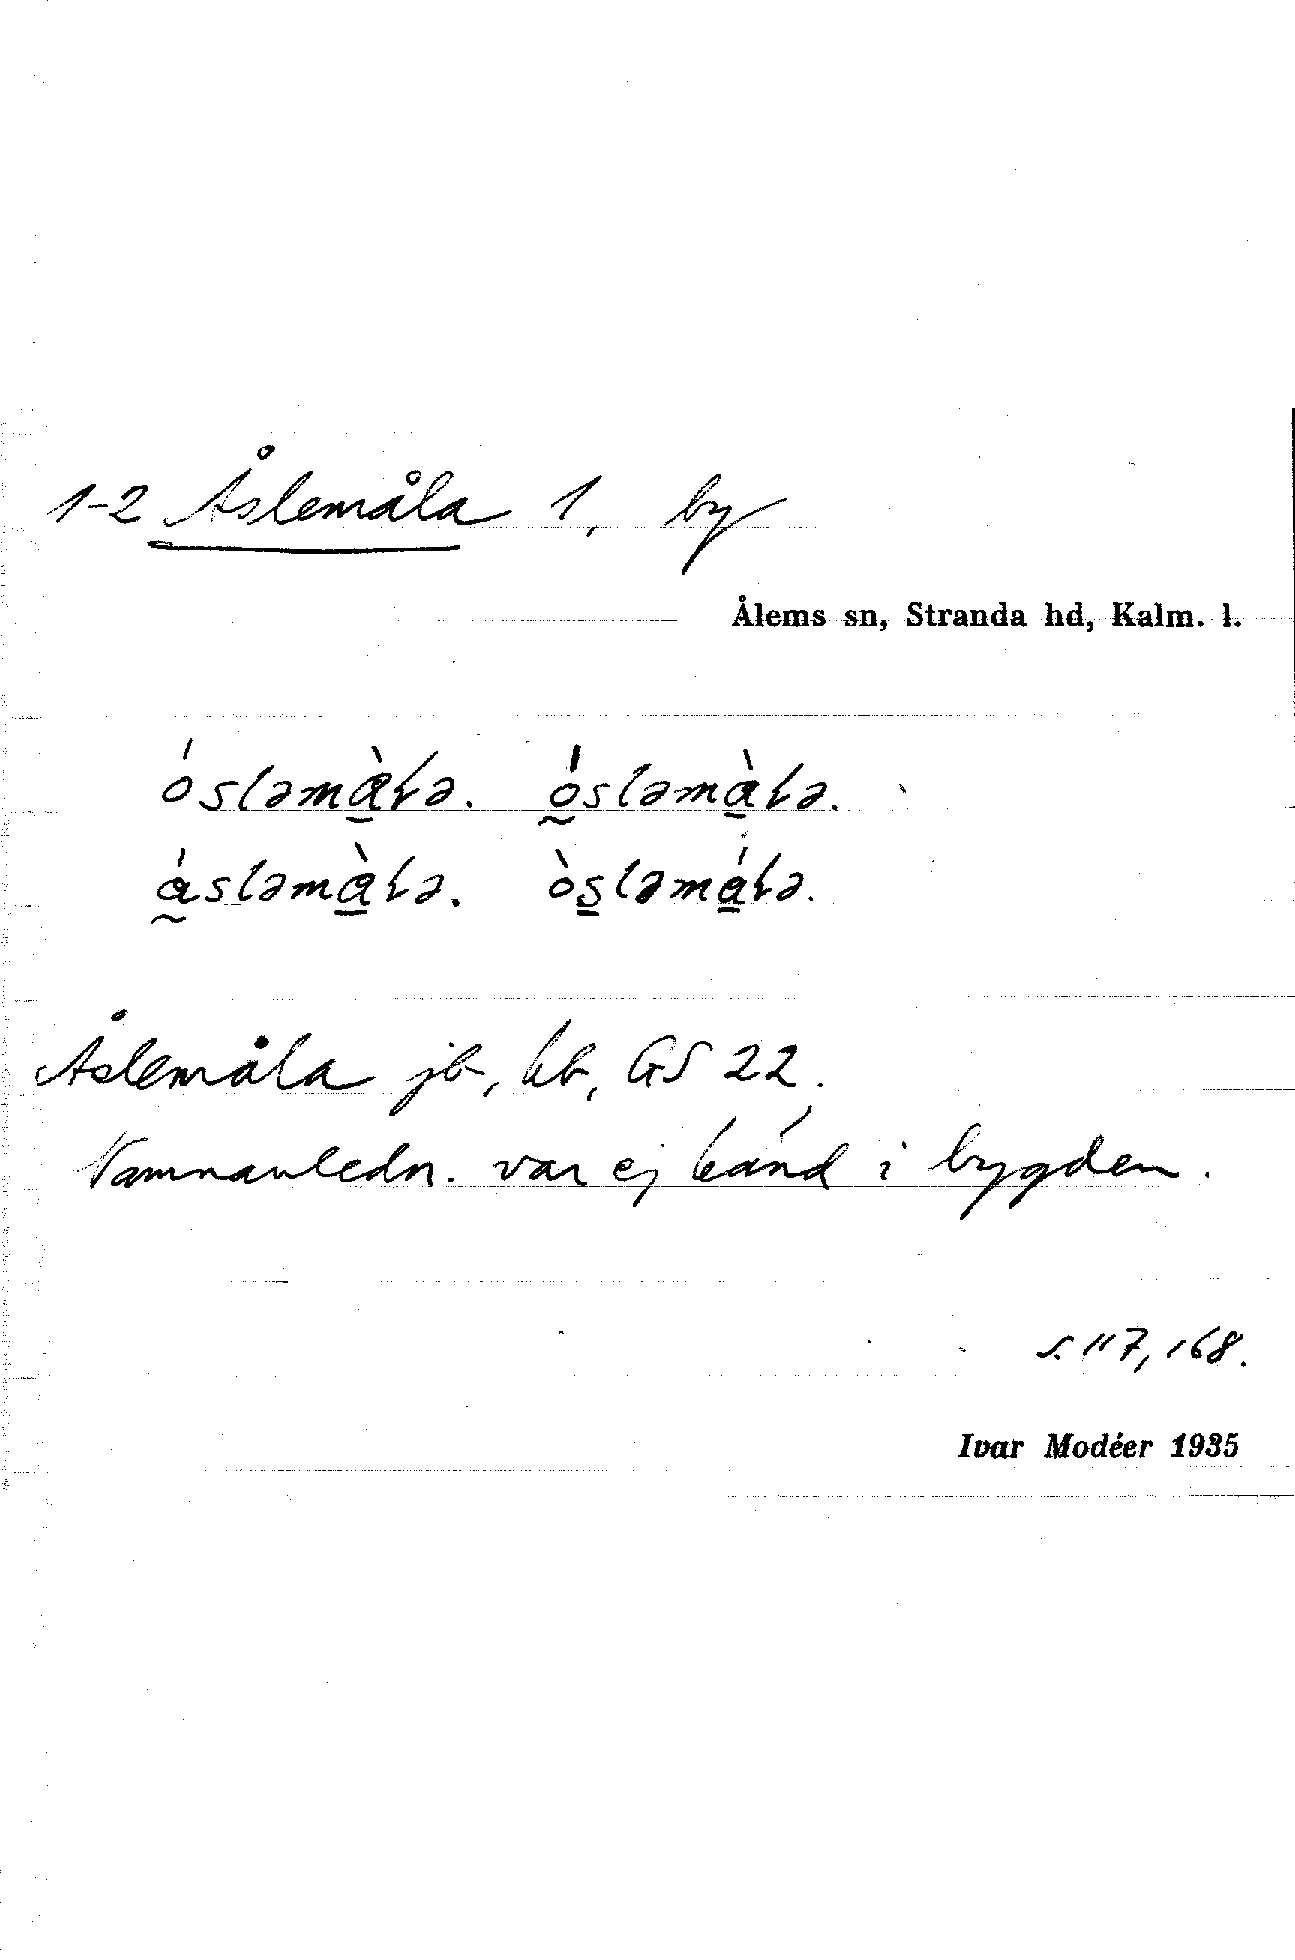 1-2 Åslemåla 1, by
Ålems sn, Stranda hd, Kalm. l.
ósləmàɫə. ó̰sləmàɫə.
á̰sləmàɫə. òs̱ləmáɫə.
Åslemåla jb, kb, GS 22.
Namnanledn. var ej känd i bygden.
s. 117, 168.
Ivar Modéer 1935